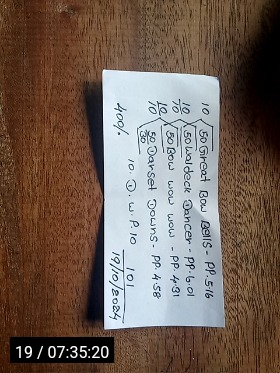 10 50 Great Bow Bells - PP. 516
10 50 Waldeck Dancer - PP. 6.01
10 50 Bow wow wow - PP. 4.31
10 50 Dorset Downs - PP. 4.58
10 30
10. D. W. P. 10
400/.
101
19/10/2024
19 / 07:35:20